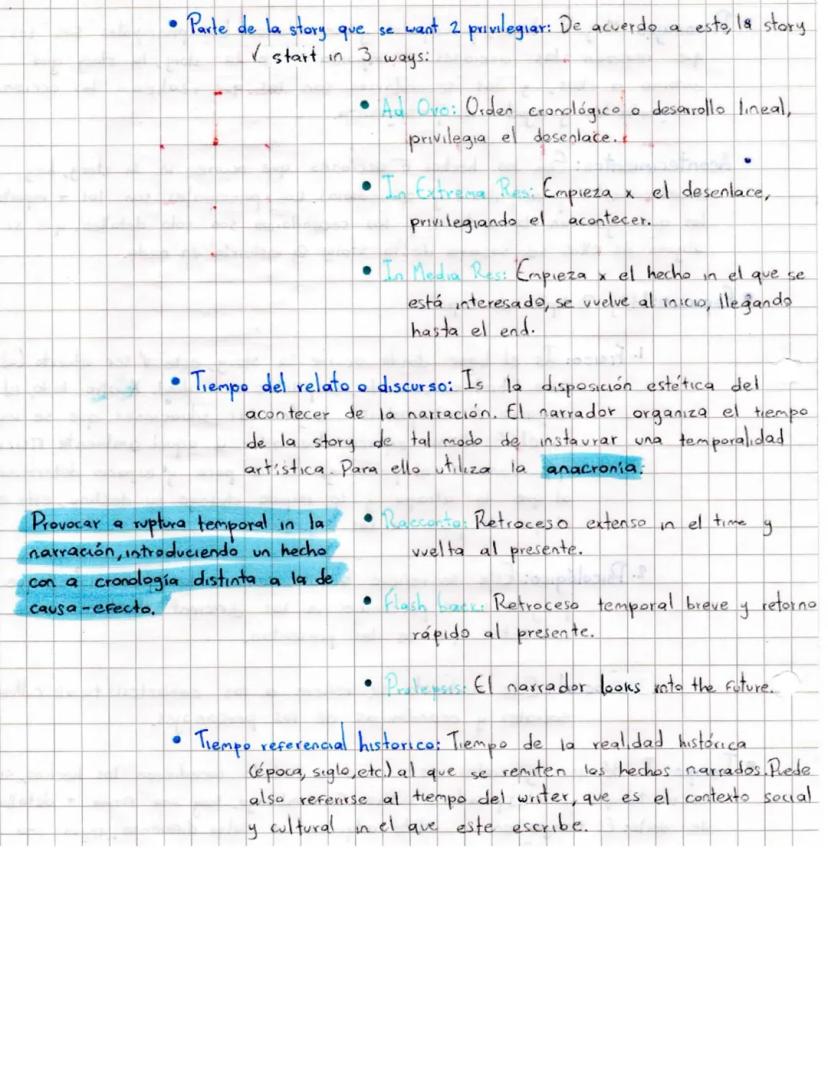 • Parte de la story que se want 2 privilegiar: De acuerdo a esto, la story
√ start in 3 ways:
• Ad Ovo: Orden cronológico o desarrollo lineal,
privilegia el desenlace.
• In Extrema Res: Empieza x el desenlace,
privilegiando el acontecer.
• In Media Res: Empieza x el hecho in el que se
está interesado, se vuelve al inicio, llegando
hasta el end.
• Tiempo del relato o discurso: Is la disposición estética del
acontecer de la narración. El narrador organiza el tiempo
de la story de tal modo de instaurar una temporalidad
artística. Para ello utiliza la anacronía:
Provocar a ruptura temporal in la
narración, introduciendo un hecho
con a cronología distinta a la de
causa-efecto.
• Racconto: Retroceso extenso in el time y
vuelta al presente.
• Flash back: Retroceso temporal breve y retorno
rápido al presente.
• Prolepsis: El narrador looks into the future.
• Tiempo referencial historico: Tiempo de la realidad histórica
(época, siglo, etc.) al que se remiten los hechos narrados. Puede
also referirse al tiempo del writer, que es el contexto social
y cultural in el que este escribe.